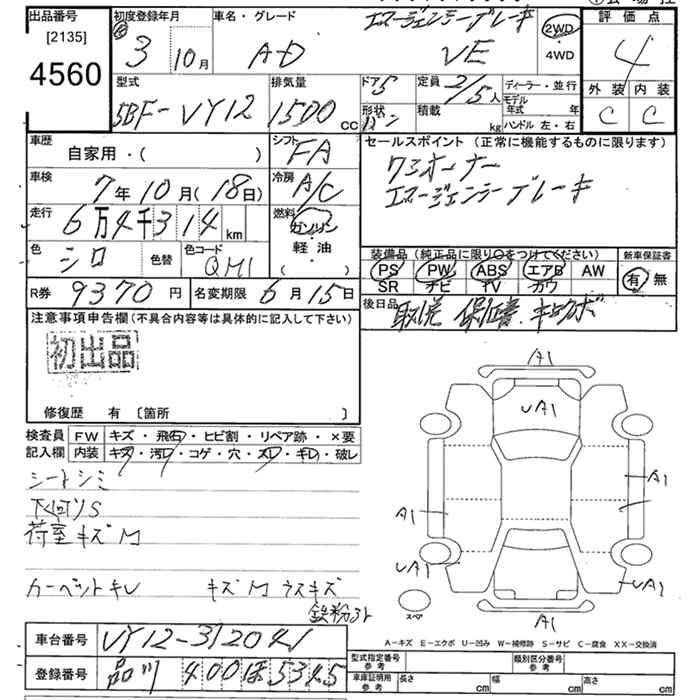 出品番号 初度登録年月 車名・グレード エマージェンシーブレーキ 2WD 評価点
[2135] 3 10月 AD VE ・4WD 4
4560
型式 排気量 ドア 5 定員 2/5人 ディーラー・並行 外装 内装
5BF-VY12 1500cc 形状 バン 積載 kg モデル年式 年 C C
ハンドル 左・右
車歴 自家用・( ) シフト FA セールスポイント (正常に機能するものに限ります)
車検 7年10月(18日) 冷房 A/C ワンオーナー
走行 6万4千314km 燃料 ガソリン エマージェンシーブレーキ
・軽・油
( )
色 シロ 色替 色コード QM1 装備品(純正品に限り○をつけてください) 新車保証書
PS PW ABS エアB AW 有・無
SR ナビ TV カワ
R券 9370円 名変期限 6月15日 後日品 取説 保証書
注意事項申告欄(不具合内容等は具体的に記入して下さい)
初出品
修復歴 有 〔箇所 〕
検査員 FW キズ・飛石・ヒビ割・リペア跡・×要
記入欄 内装 キズ・汚レ・コゲ・穴・スレ・キレ・破レ
シートシミ
下回りS
荷室キズM
カーペットキレ キズM ウスキズ
鉄粉
A1
UA1
A1
A1
UA1
UA1
スペア
A1
A-キズ E-エクボ U-凹み W-補修跡 S-サビ C-腐食 XX-交換済
車台番号 VY12-312041 型式指定番号 参考 類別区分番号 参考
登録番号 品川 400 ほ 5325 車庫証明用 参考 長さ cm 幅 cm 高さ cm